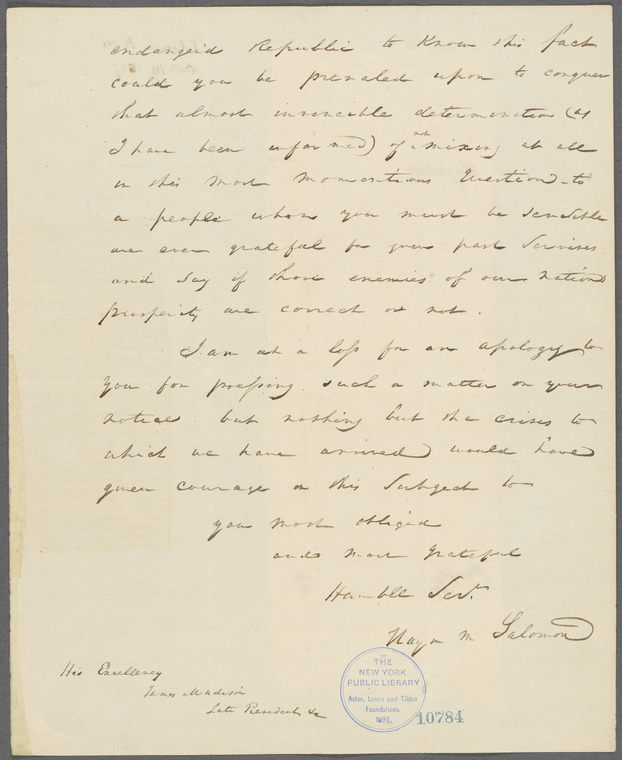 endangerd Republic to Know this fact
could you be prevaled upon to conquer
that almost invincible determination (as
I have been informed) of not mixing at all
in this most momentious Question - to
a people whom you must be sensible
are ever grateful for your past Servises
and say if those enemies of our national
prosperity are correct or not.
I am at a loss for an apology to
you for pressing such a matter on your
notice but nothing but the crises to
which we have arrived would have
given courage on this Subject to
your most obliged
and most grateful
Humble Servt.
Haym M Salomon
His Excellency
James Madison
Late President &c
THE
NEW YORK
PUBLIC LIBRARY
Astor, Lenox and Tilden
Foundations.
1897.
10784